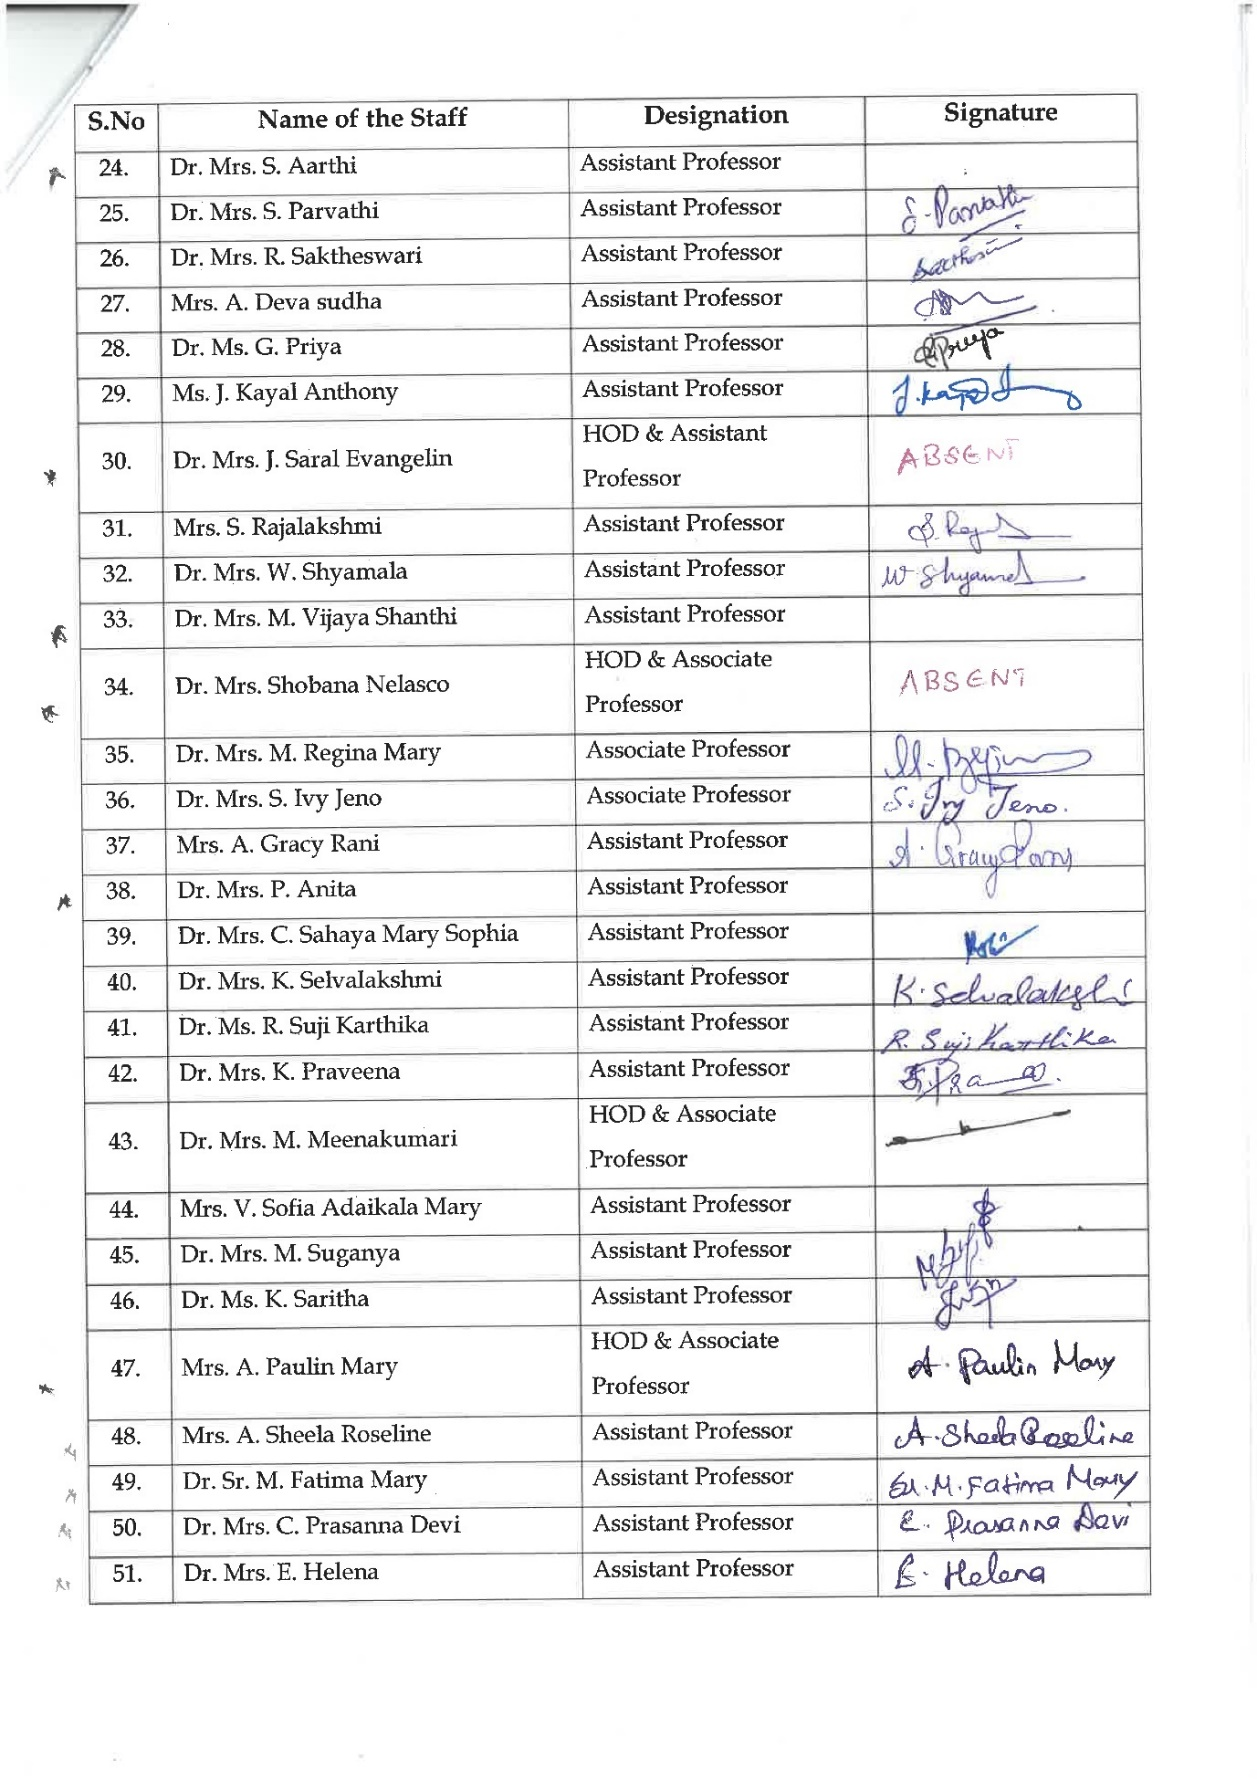 S.No Name of the Staff Designation Signature
24. Dr. Mrs. S. Aarthi Assistant Professor
25. Dr. Mrs. S. Parvathi Assistant Professor S. Parvathi
26. Dr. Mrs. R. Saktheswari Assistant Professor
27. Mrs. A. Deva sudha Assistant Professor
28. Dr. Ms. G. Priya Assistant Professor G. Priya
29. Ms. J. Kayal Anthony Assistant Professor
30. Dr. Mrs. J. Saral Evangelin HOD & Assistant
Professor ABSENT
31. Mrs. S. Rajalakshmi Assistant Professor
32. Dr. Mrs. W. Shyamala Assistant Professor W. Shyamal
33. Dr. Mrs. M. Vijaya Shanthi Assistant Professor
34. Dr. Mrs. Shobana Nelasco HOD & Associate
Professor ABSENT
35. Dr. Mrs. M. Regina Mary Associate Professor
36. Dr. Mrs. S. Ivy Jeno Associate Professor S. Ivy Jeno.
37. Mrs. A. Gracy Rani Assistant Professor A. Gracy Rani
38. Dr. Mrs. P. Anita Assistant Professor
39. Dr. Mrs. C. Sahaya Mary Sophia Assistant Professor
40. Dr. Mrs. K. Selvalakshmi Assistant Professor K. Selvalakshmi
41. Dr. Ms. R. Suji Karthika Assistant Professor R. Suji Karthika
42. Dr. Mrs. K. Praveena Assistant Professor
43. Dr. Mrs. M. Meenakumari HOD & Associate
Professor
44. Mrs. V. Sofia Adaikala Mary Assistant Professor
45. Dr. Mrs. M. Suganya Assistant Professor
46. Dr. Ms. K. Saritha Assistant Professor
47. Mrs. A. Paulin Mary HOD & Associate
Professor A. Paulin Mary
48. Mrs. A. Sheela Roseline Assistant Professor A. Sheela Roseline
49. Dr. Sr. M. Fatima Mary Assistant Professor Sr. M. Fatima Mary
50. Dr. Mrs. C. Prasanna Devi Assistant Professor C. Prasanna Devi
51. Dr. Mrs. E. Helena Assistant Professor E. Helena